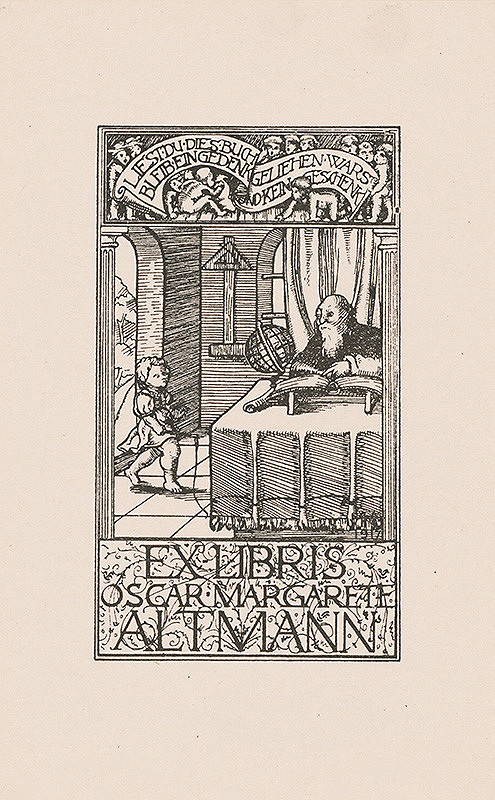 LIESTDU·DIES·BUCH
BLEIB EINGEDENK
GELIEHEN·WARS·
UND KEIN GESCHENK
EX LIBRIS
OSCAR·MARGARETE
ALTMANN